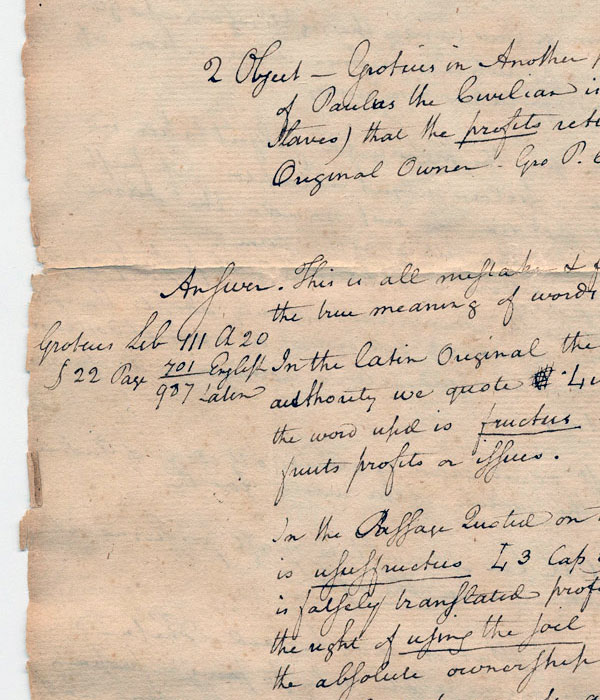 2 Object — Grotius in Another
of Paulas the Civilian i
Slaves) that the profits
Original Owner - Gro P.
Answer. This is all mistake &
the true meaning of words
Grotius Lib III A 20
§ 22 Page 701 English
987 Laten
In the Latin Original the
authority we quote
the word used is fructus
fruits profits or issues.
In the Passage Quoted on
is usufructus L 3 Cap
is falsely translated prof
the right of using the soil
the absolute ownership